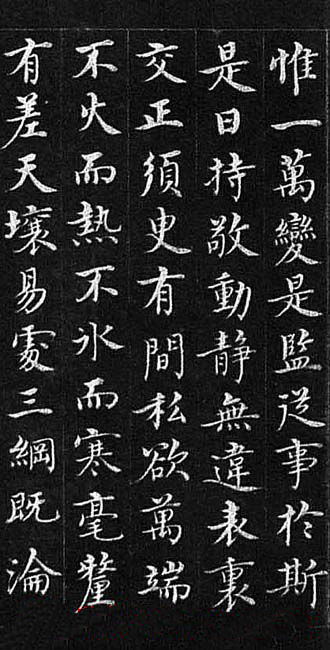 惟一萬變是監從事於斯
是曰持敬動靜無違表裏
交正須臾有間私欲萬端
不火而熱不冰而寒毫釐
有差天壤易處三綱既淪